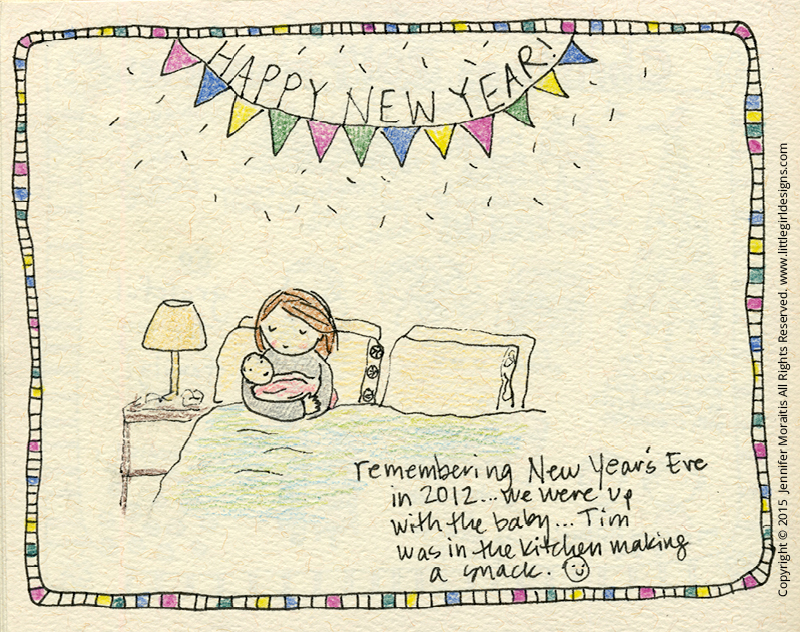 HAPPY NEW YEAR!
remembering New Year's Eve
in 2012... we were up
with the baby... Tim
was in the kitchen making
a snack.
Copyright © 2015 Jennifer Moraitis All Rights Reserved. www.littlegirldesigns.com